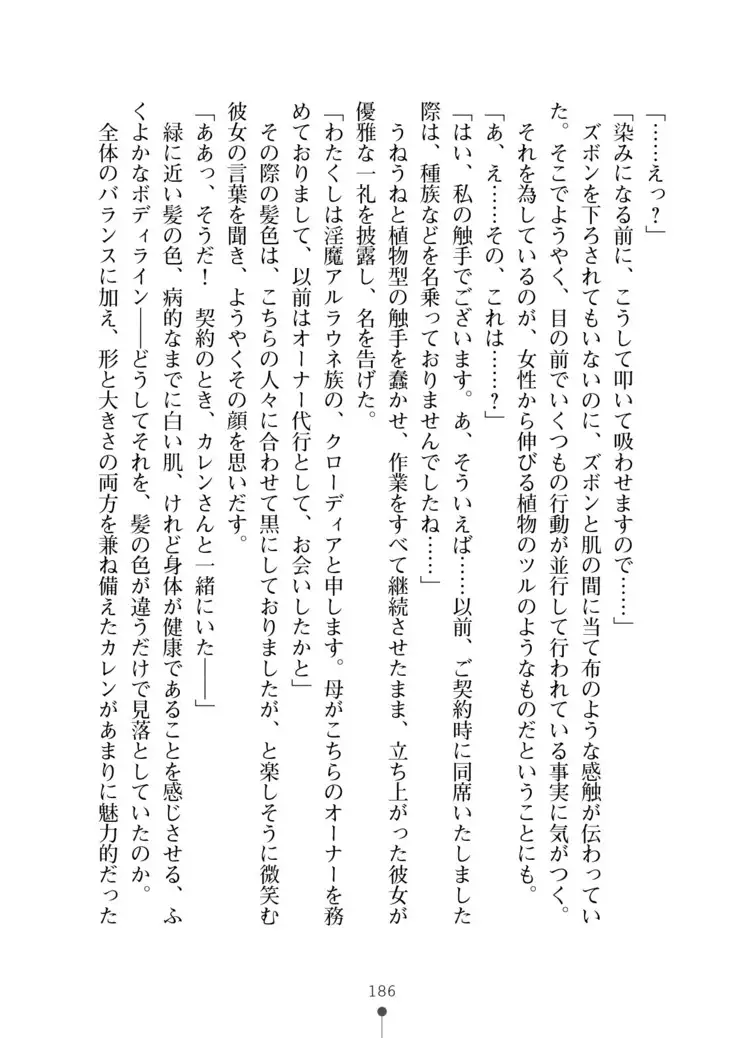 「……えっ？」
「染みになる前に、こうして叩いて吸わせますので……」
ズボンを下ろされてもいないのに、ズボンと肌の間に当て布のような感触が伝わってい
た。そこでようやく、目の前でいくつもの行動が並行して行われている事実に気がつく。
それを為しているのが、女性から伸びる植物のツルのようなものだということにも。
「あ、え……その、これは……？」
「はい、私の触手でございます。あ、そういえば……以前、ご契約時に同席いたしました
際は、種族などを名乗っておりませんでしたね……」
うねうねと植物型の触手を蠢かせ、作業をすべて継続させたまま、立ち上がった彼女が
優雅な一礼を披露し、名を告げた。
「わたくしは淫魔アルラウネ族の、クローディアと申します。母がこちらのオーナーを務
めておりまして、以前はオーナー代行として、お会いしたかと」
その際の髪色は、こちらの人々に合わせて黒にしておりましたが、と楽しそうに微笑む
彼女の言葉を聞き、ようやくその顔を思いだす。
「ああっ、そうだ！　契約のとき、カレンさんと一緒にいた――」
緑に近い髪の色、病的なまでに白い肌、けれど身体が健康であることを感じさせる、ふ
くよかなボディライン――どうしてそれを、髪の色が違うだけで見落としていたのか。
全体のバランスに加え、形と大きさの両方を兼ね備えたカレンがあまりに魅力的だった
186